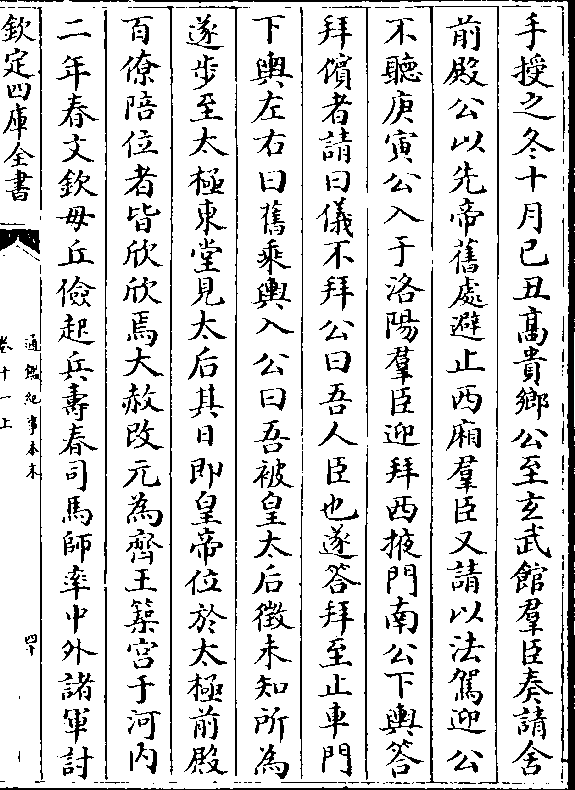 手授之冬十月已丑髙貴鄉公至玄武館羣臣奏請舍
前殿公以先帝舊處避止西廂羣臣又請以法駕迎公
不聽庚寅公入于洛陽羣臣迎拜西掖門南公下輿答
拜儐者請曰儀不拜公曰吾人臣也遂答拜至止車門
下輿左右曰舊乘輿入公曰吾被皇太后徵未知所為
遂步至太極東堂見太后其日即皇帝位於太極前殿
百僚陪位者皆欣欣焉大赦改元為齊王築宫于河内
二年春文欽毋丘儉起兵壽春司馬師率中外諸軍討
欽定四庫全書
通鑑紀事本末
卷十一上
四十